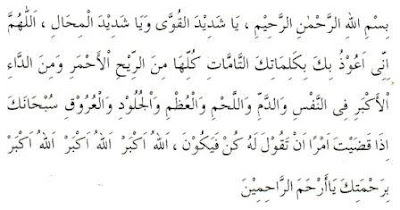 بِسْمِ اللهِ الرَّحْمٰنِ الرَّحِيْمِ ، يَا شَدِيْدَ الْقُوَّى وَيَا شَدِيْدَ الْمِحَالِ ، اَللّٰهُمَّ
اِنِّى اَعُوْذُ بِكَ بِكَلِمَاتِكَ التَّامَّاتِ كُلِّهَا مِنَ الرِّيْحِ الْأَحْمَرِ وَمِنَ الدَّاءِ
الْأَكْبَرِ فِى النَّفْسِ وَالدَّمِّ وَاللَّحْمِ وَالْعُظْمِ وَالْجُلُوْدِ وَالْعُرُوْقِ سُبْحَانَكَ
اِذَا قَضَيْتَ اَمْرًا اَنْ تَقُوْلَ لَهُ كُنْ فَيَكُوْنَ ، اَللهُ اَكْبَرْ اَللهُ اَكْبَرْ اَللهُ اَكْبَرْ
بِرَحْمَتِكَ يَاأَرْحَمَ الرَّاحِمِيْنَ